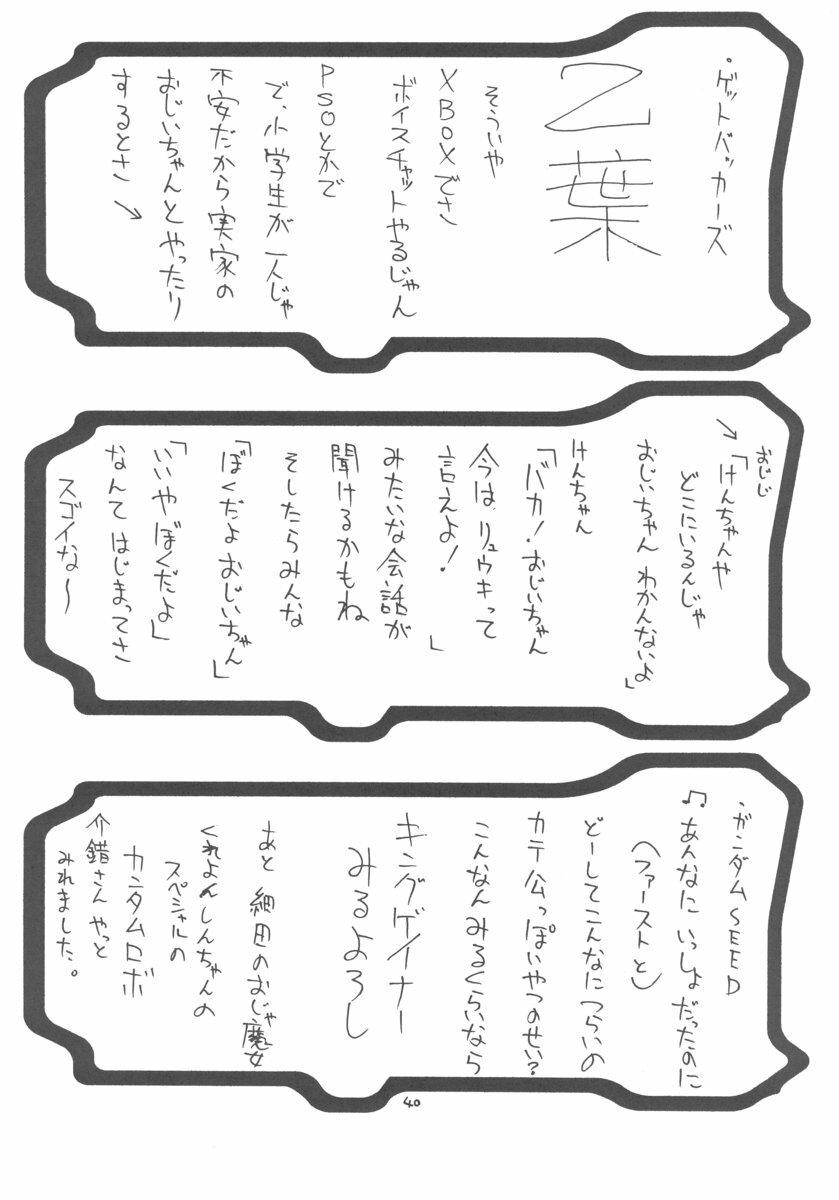 ・ゲットバッカーズ
乙葉
そういや
XBOXでさ
ボイスチャットやるじゃん
PSOとかで
で、小学生が一人じゃ
不安だから実家の
おじいちゃんとやったり
するとさ↘
おじじ
↘「けんちゃんや
どこにいるんじゃ
おじいちゃんわかんないよ」
けんちゃん
「バカ!おじいちゃん
今はリュウキって
言えよ!」
みたいな会話が
聞けるかもね
そしたらみんな
「ぼくだよおじいちゃん」
「いいやぼくだよ」
なんてはじまってさ
スゴイな〜
・ガンダムSEED
♫あんなにいっしょだったのに
(ファーストと)
どーしてこんなにつらいの
カテ公っぽいやつのせい?
こんなんみるくらいなら
キングゲイナー
みるよろし
あと細田のおじゃ魔女
くれよんしんちゃんの
スペシャルの
カンタムロボ
介錯さんやっと
みれました。
40